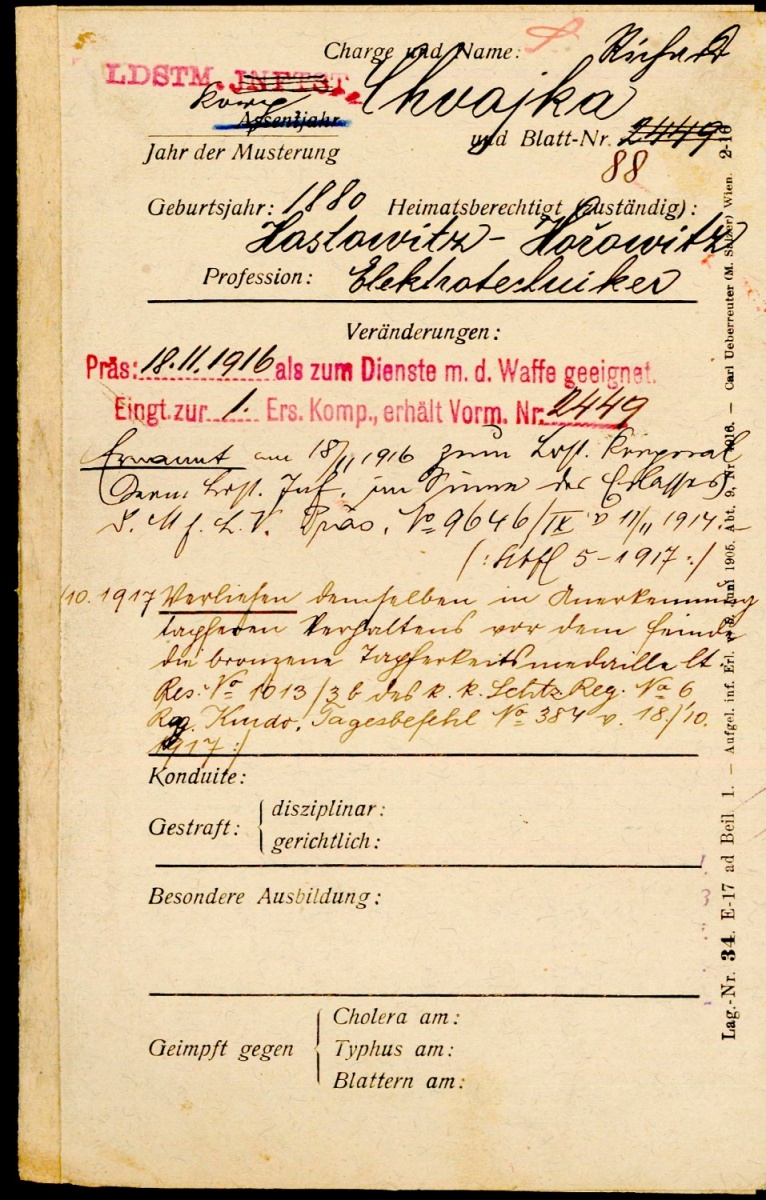 Charge und Name: Richard
LDSTM. JNFTST. Chvajka
Korp
Assentjahr
Jahr der Musterung und Blatt-Nr. 2449
88
Geburtsjahr: 1880 Heimatsberechtigt (zuständig):
Hostowitz - Hořowitz
Profession: Elektrotechniker
Veränderungen:
Präs: 18.11.1916 als zum Dienste m. d. Waffe geeignet.
Eingt. zur 1. Ers. Komp., erhält Vorm. Nr. 2449
Ernannt am 18/11 1916 zum Lst. Korporal
Lst. Inf. im Sinne des Erlasses
d. M f. L. V. Präs. No 9646/IX v 11/11 1914.-
(: 5-1917 :)
/10. 1917 Verliehen demselben in Anerkennung
tapferen Verhaltens vor dem Feinde
die bronzene Tapferkeitsmedaille lt
Res. No 1013/3b des k. k. Schtz Reg. No 6
Reg. Kmdo. Tagesbefehl No 384 v. 18./10.
1917 :/
Konduite:
Gestraft: disziplinar:
gerichtlich:
Besondere Ausbildung:
Geimpft gegen Cholera am:
Typhus am:
Blattern am:
Lag.-Nr. 34. E-17 ad Beil. 1. — Aufgel. inf. Erl. v. Juni 1905. Abt. 9, Nr. 2016. — Carl Ueberreuter (M. Salzer) Wien. 2-16